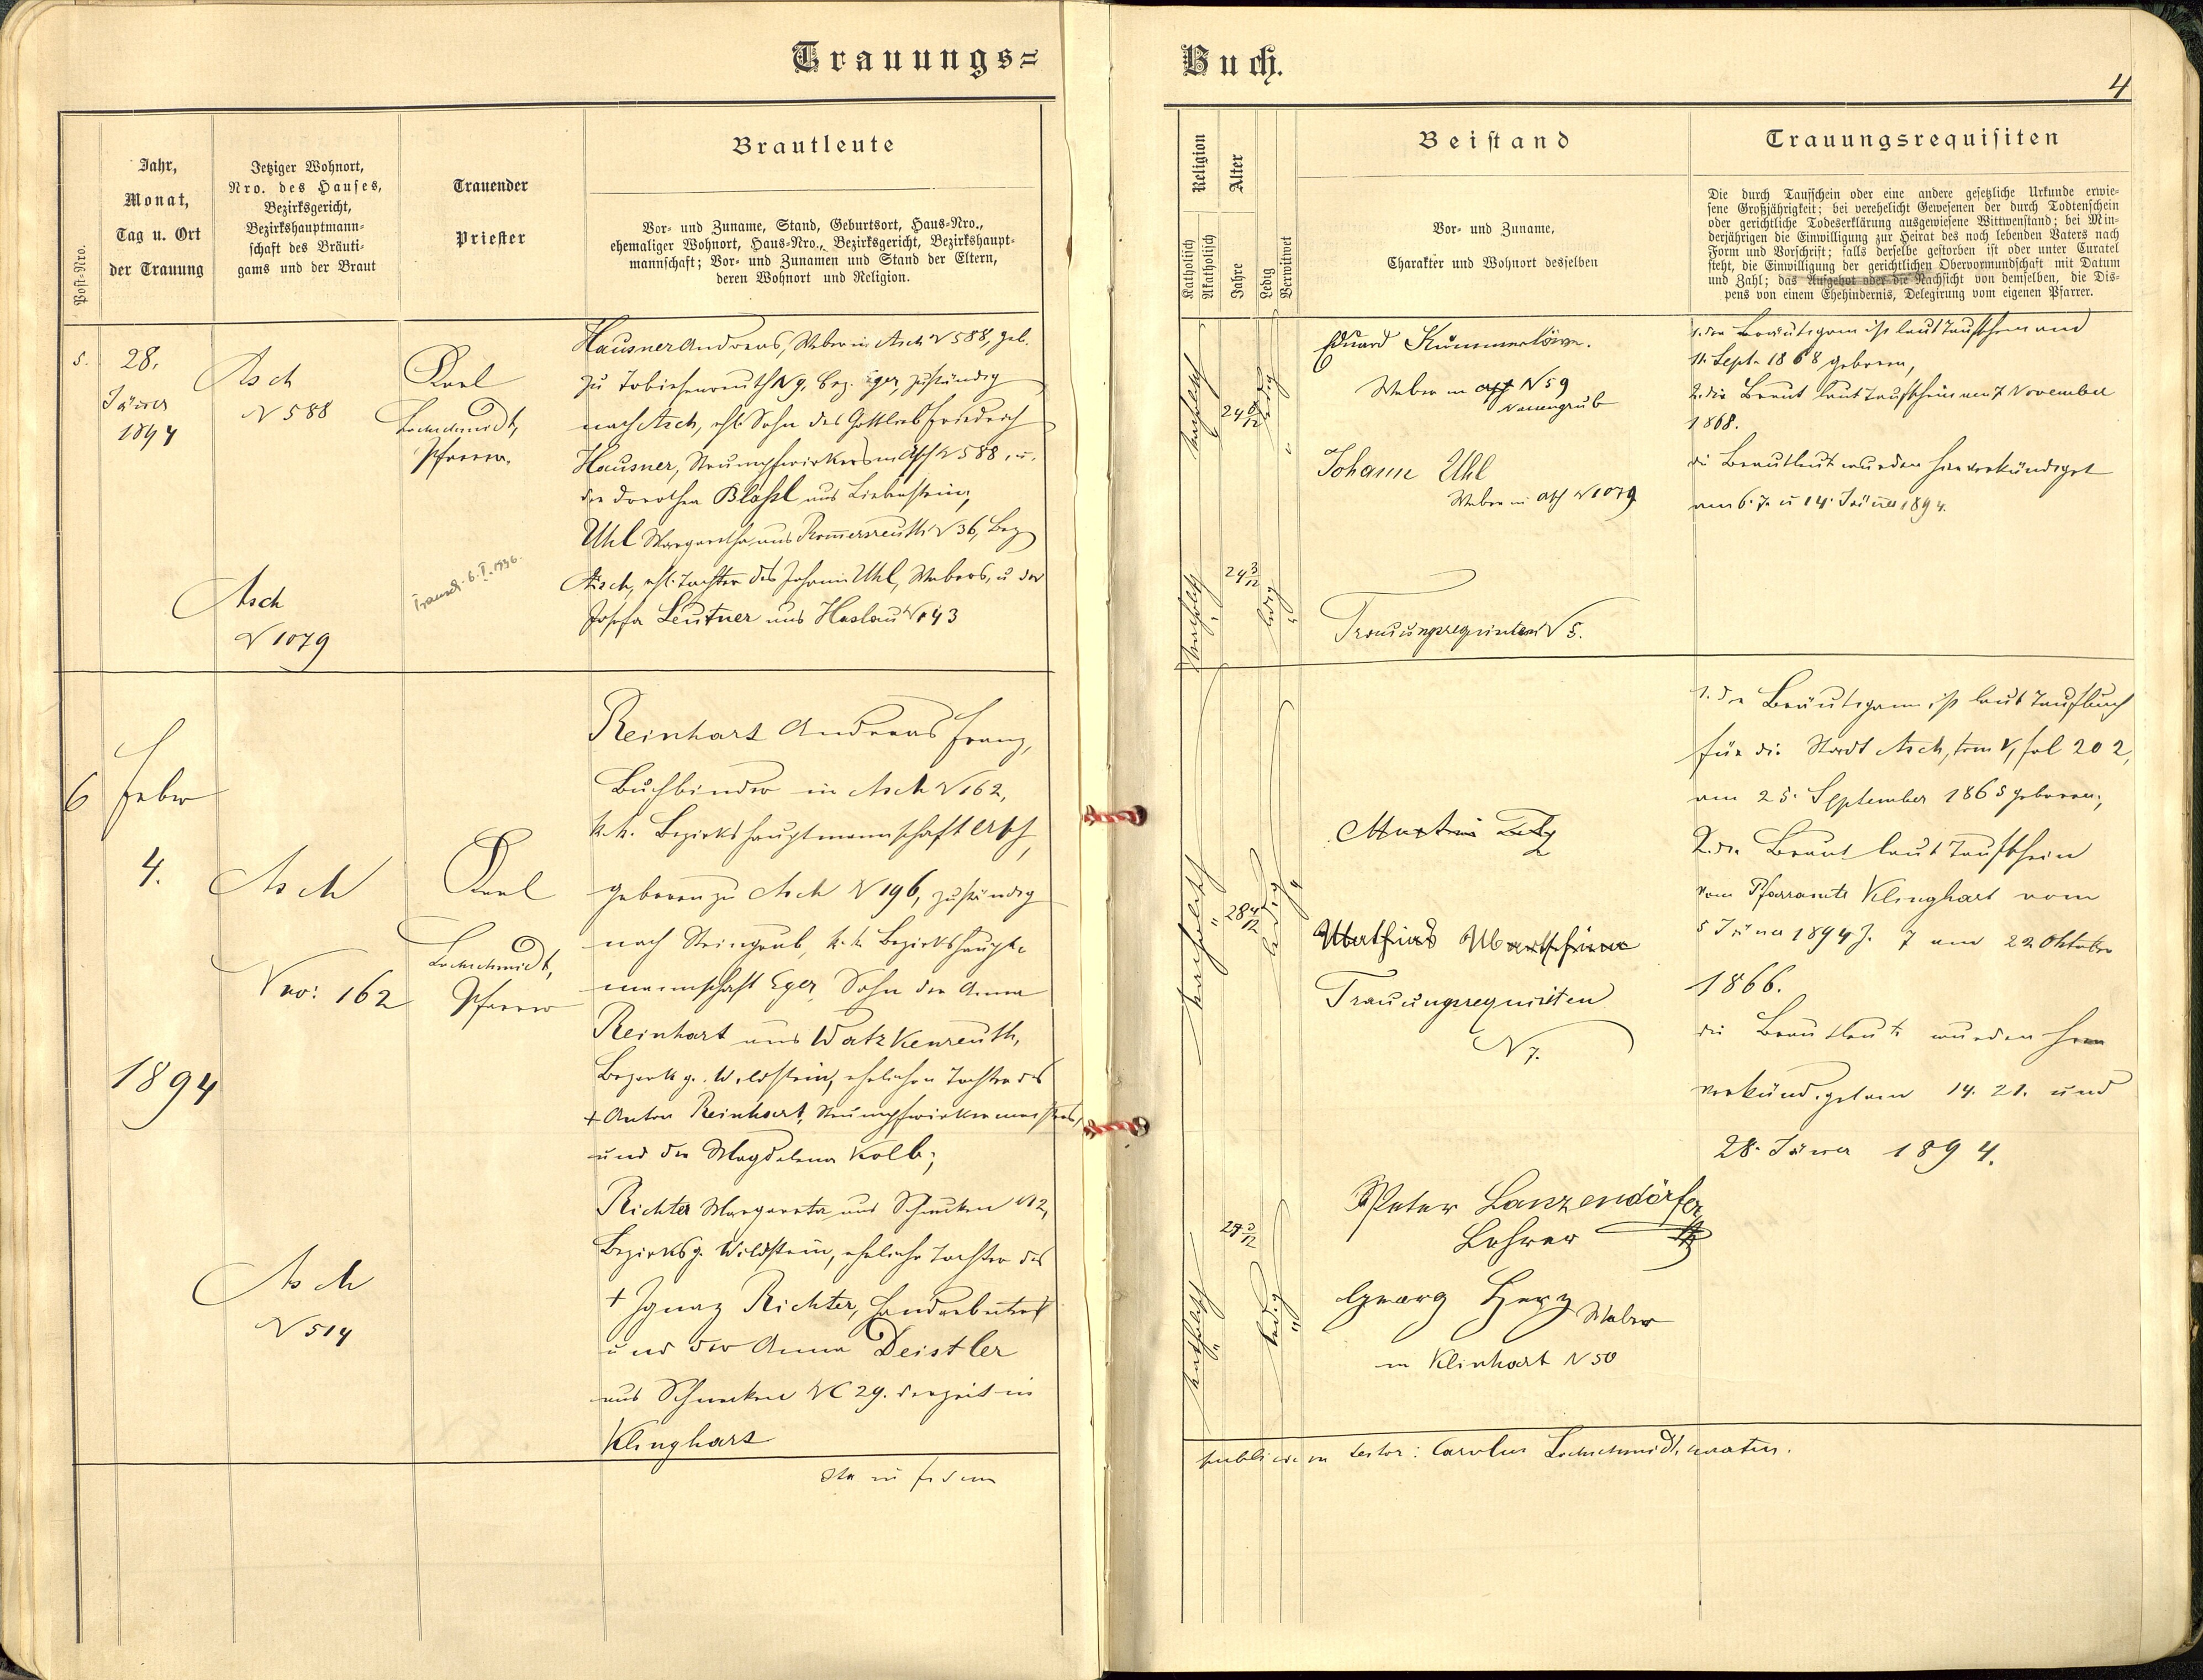 Trauungs=
Buch.
4
Post-Nro.
Jahr,
Monat,
Tag u. Ort
der Trauung
Jetziger Wohnort,
Nro. des Hauses,
Bezirksgericht,
Bezirkshauptmann=
schaft des Bräuti=
gams und der Braut
Trauender
Priester
Brautleute
Vor- und Zuname, Stand, Geburtsort, Haus-Nro.,
ehemaliger Wohnort, Haus-Nro., Bezirksgericht, Bezirkshaupt=
mannschaft; Vor- und Zunamen und Stand der Eltern,
deren Wohnort und Religion.
Religion
Katholisch
Akatholisch
Alter
Jahre
Ledig
Verwitwet
Beistand
Vor- und Zuname,
Charakter und Wohnort desselben
Trauungsrequisiten
Die durch Taufschein oder eine andere gesetzliche Urkunde erwie=
sene Großjährigkeit; bei verehelicht Gewesenen der durch Todtenschein
oder gerichtliche Todeserklärung ausgewiesene Wittwenstand; bei Min=
derjährigen die Einwilligung zur Heirat des noch lebenden Vaters nach
Form und Vorschrift; falls derselbe gestorben ist oder unter Curatel
steht, die Einwilligung der gerichtlichen Obervormundschaft mit Datum
und Zahl; das Aufgebot oder die Nachsicht von demselben, die Dis=
pens von einem Ehehindernis, Delegirung vom eigenen Pfarrer.
5.
28.
Jänner
1894
Asch
N 588
Karl
Lochschmidt,
Pfarrer.
Hausner Andreas, Weber in Asch N 588, geb.
zu Tobiesenreuth N 9, Bez. Eger, zuständig
nach Asch, ehl. Sohn des Gottlieb Friedrich
Hausner, Strumpfwirkers in Asch N 588, u.
der Dorothea Blahsl aus Liebenstein;
Uhl Margaretha aus Rommersreuth N 36, Bez
Asch, ehl. Tochter des Johann Uhl, Webers, u der
Josefa Leutner aus Haslau N 143
Asch
N 1079
Trausch. 6. I. 1936.
katholisch
24 4/12
ledig
"
katholisch
24 3/12
ledig
"
Eduard Kummerlöwe.
Weber in Asch N 59
Nassengrub
Johann Uhl
Weber in Asch N 1079
Trauungsrequisiten N 5.
1. der Bräutigam ist laut Taufschein am
11. Sept. 1868 geboren,
2. die Braut laut Taufschein am 7 November
1868.
die Brautleute wurden hier verkündiget
am 6. 7. u 14. Jänner 1894.
6
Feber
4.
1894
Asch
Nro: 162
Karl
Lochschmidt,
Pfarrer
Reinhart Andreas Franz,
Buchbinder in Asch N 162,
k. k. Bezirkshauptmannschaft Asch,
geboren zu Asch N 196, zuständig
nach Steingrub, k. k. Bezirkshaupt=
mannschaft Eger, Sohn der Anna
Reinhart aus Watzkenreuth,
Bezirksg. Wildstein, ehelichen Tochter des
+ Anton Reinhart, Strumpfwirkermeisters,
und der Magdalena Kolb;
Richter Margareta aus Schnecken N 2,
Bezirksg. Wildstein, eheliche Tochter des
+ Ignaz Richter, Handarbeiters
und der Anna Deistler
aus Schnecken NC 29. derzeit in
Klinghart
Asch
N 514
katholisch
"
28 4/12
ledig
"
katholisch
"
ledig
"
Martin
Mathias
Trauungsrequisiten
N 7.
Peter Lanzendörfer
Lehrer
Georg Herz Weber
in Klinhart N 50
1. der Bräutigam ist laut Taufbuch
für die Stadt Asch, tom V, fol 202,
am 25. September 1865 geboren;
2. die Braut laut Taufschein
vom Pfarramte Klinghart vom
5 Jänner 1894 Z. 7 am 22 Oktober
1866.
die Brautleute wurden hier
verkündiget am 14. 21. und
28. Jänner 1894.
Ita in fidem
publicum testor: Carolus Lochschmidt, curatus.